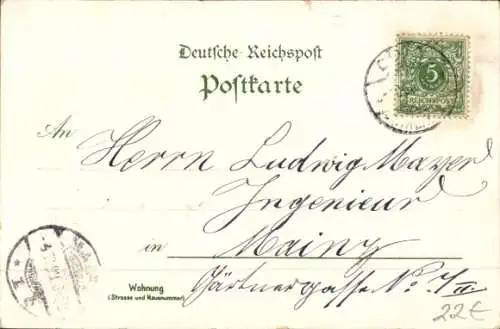 Deutsche Reichspost
Postkarte
5
REICHSPOST
An
Herrn Ludwig Mayer
Ingenieur
in Mainz
Wohnung
(Strasse und Hausnummer)
Gärtnergasse No.
22€